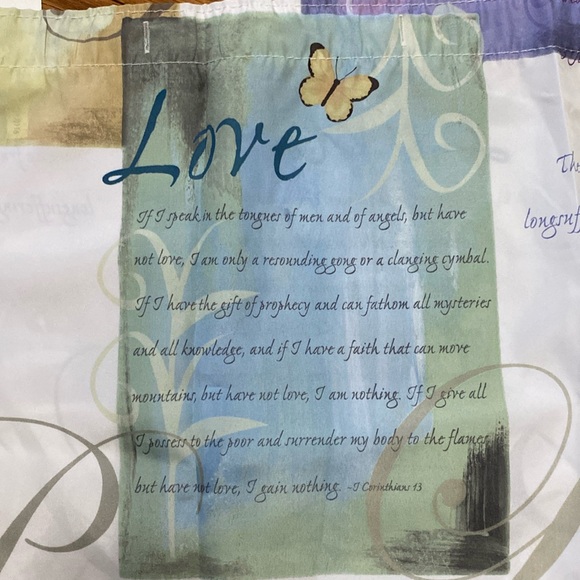 Love
If I speak in the tongues of men and of angels, but have
not love, I am only a resounding gong or a clanging cymbal.
If I have the gift of prophecy and can fathom all mysteries
and all knowledge, and if I have a faith that can move
mountains, but have not love, I am nothing. If I give all
I possess to the poor and surrender my body to the flames,
but have not love, I gain nothing. ~I Corinthians 13